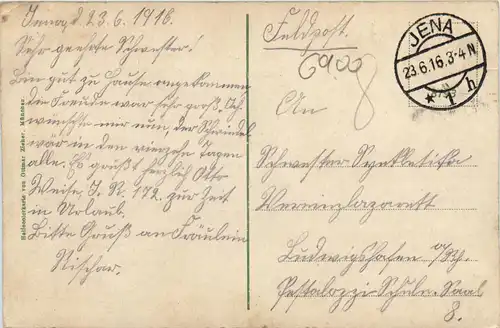 Jena, d. 23.6.1916.
Sehr geehrte Schwester!
Bin gut zu Hause angekommen
die Freude war sehr groß. Ich
wünschte mir nun der Schwindel
wär in den vierzehn Tagen
alle. Es grüßt herzlich Otto
Weise, J. R. 172. zur Zeit
in Urlaub.
Bitte Gruß an Fräulein
Hallesmarkarte von Ottmar Zieher, München
Feldpost.
6900
8
JENA
23.6.16.3-4N
* 1 h
An
Schwester
Vereinslazarett
Ludwigshafen a/Rh.
Pestalozzi-Schule. Saal
8.